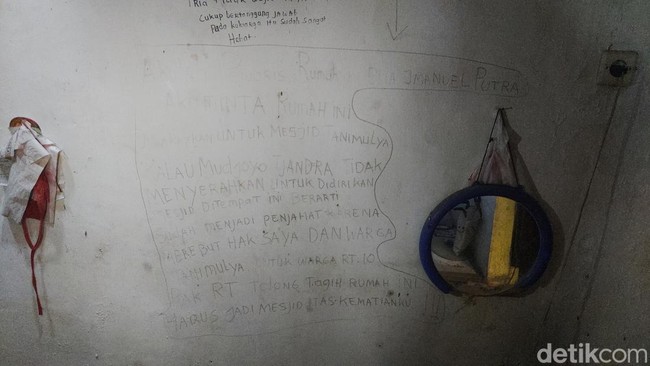 CUKUP bertanggung JAWAB
Pada keluarga itu Sudah Sangat
Hebat.
RUMAH IMANUEL PUTRA
MINTA RUMAH INI
UNTUK MESJID TANIMULYA
KALAU MUDJOYO TJANDRA TIDAK
MENYERAHKAN UNTUK DIDIRIKAN
MESJID DITEMPAT INI BERARTI
MENJADI PENJAHAT KARENA
MEREBUT HAK SAYA DAN WARGA
TANIMULYA UNTUK WARGA RT.10
PAK RT TOLONG TAGIH RUMAH INI
HARUS JADI MESJID ATAS KEMATIANKU !!!
detikcom